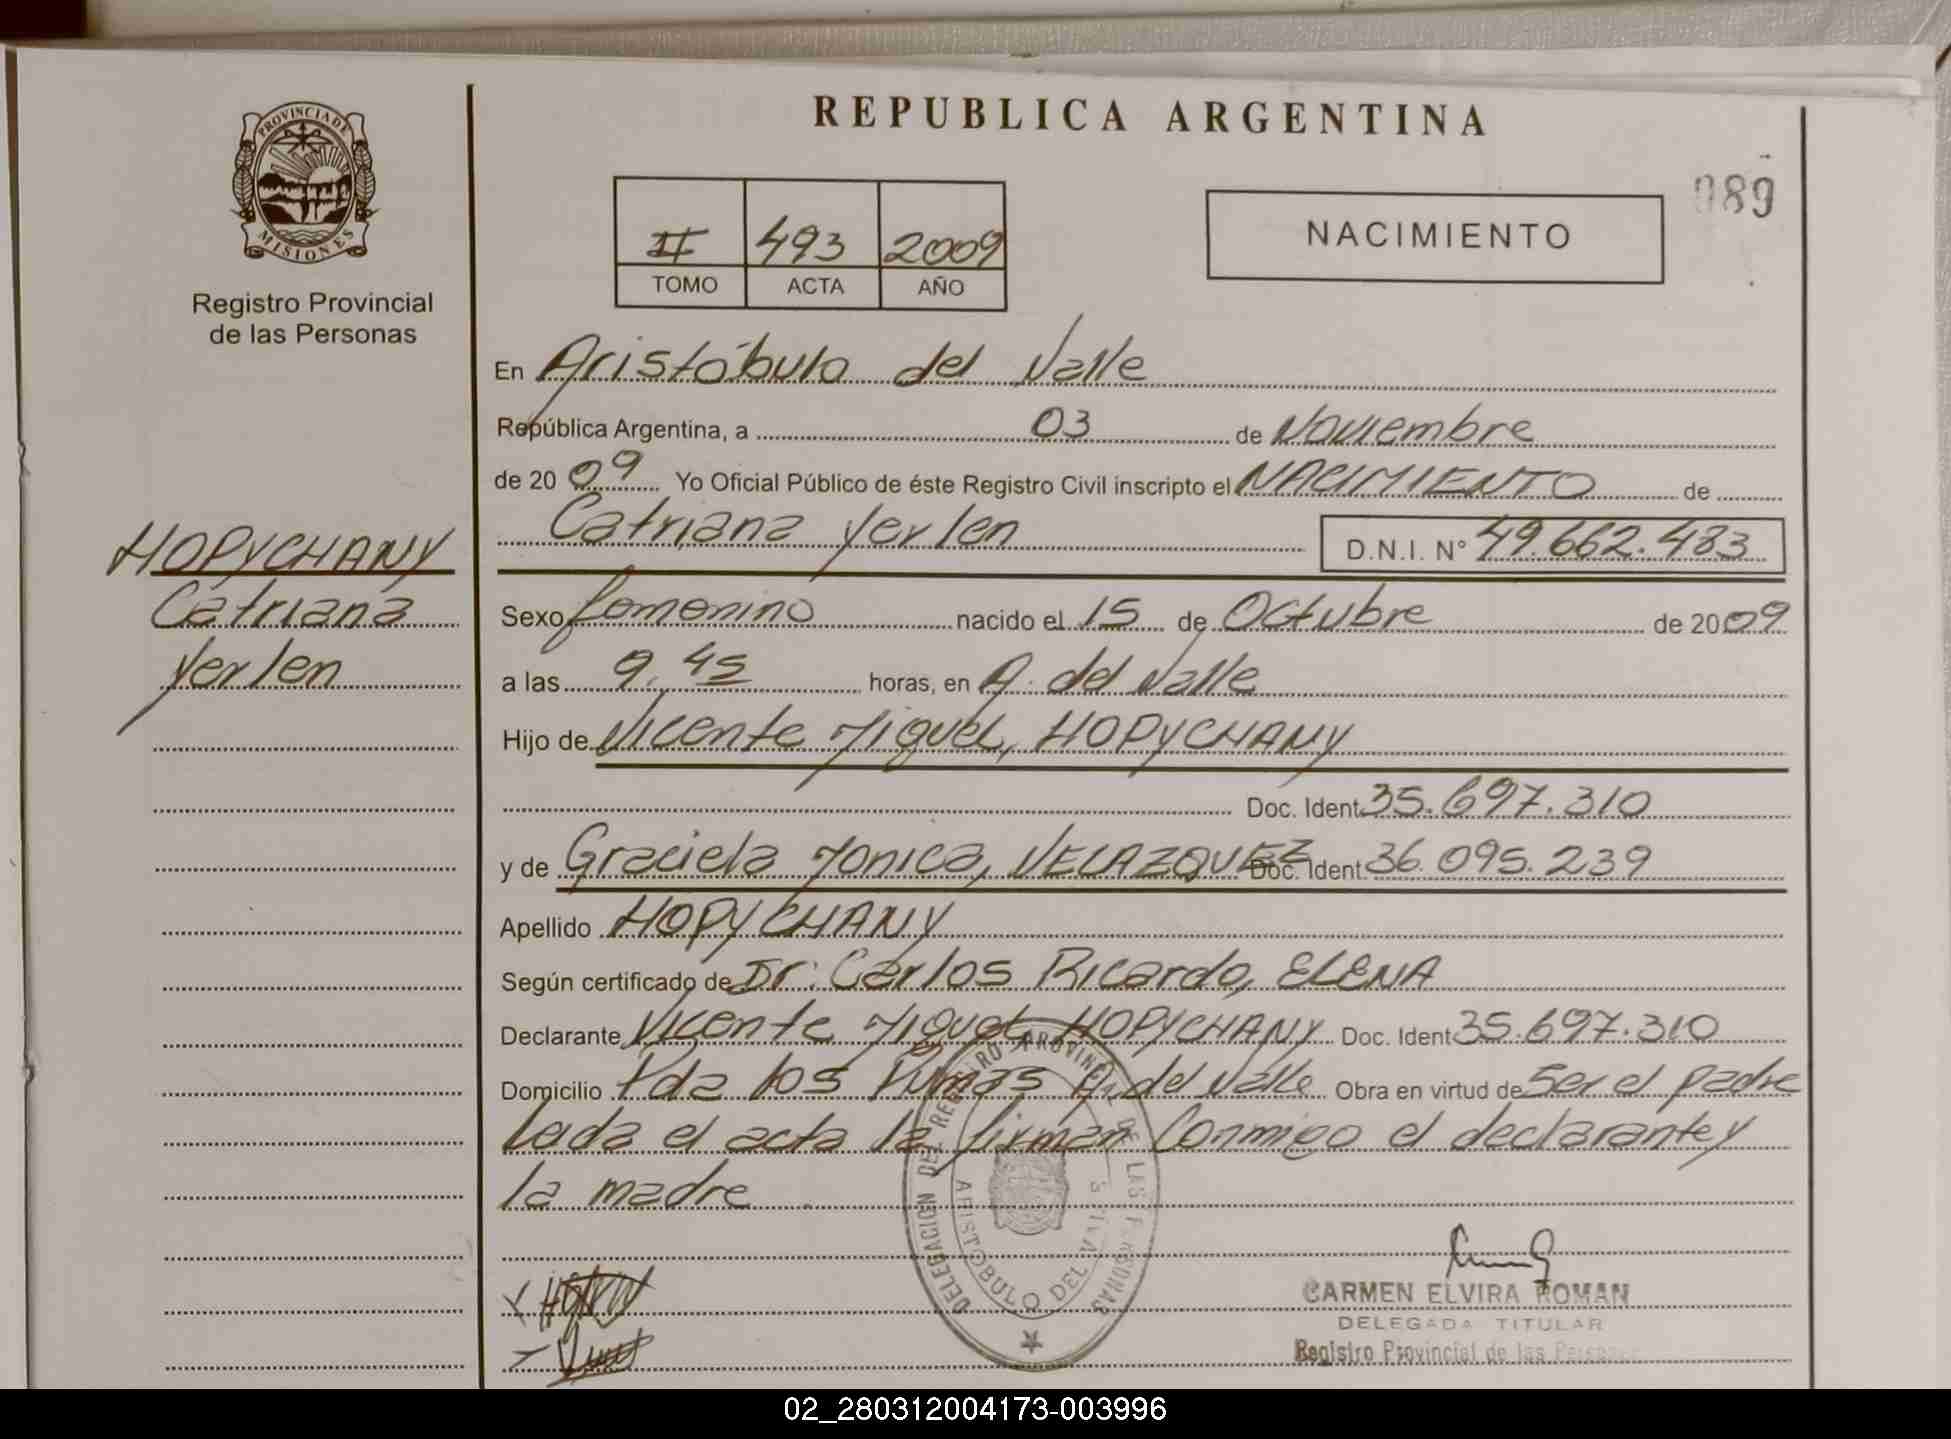 PROVINCIA DE
MISIONES
Registro Provincial
de las Personas
HOPYCHANY
Catriana
Yerlen
REPUBLICA ARGENTINA
089
II 493 2009
TOMO ACTA AÑO
NACIMIENTO
En Aristóbulo del Valle
República Argentina, a 03 de Noviembre
de 2009 Yo Oficial Público de éste Registro Civil inscripto el NACIMIENTO de
Catriana Yerlen D.N.I. N° 49.662.483
Sexo femenino nacido el 15 de Octubre de 2009
a las 9.45 horas, en A. del Valle
Hijo de Vicente Miguel, HOPYCHANY
Doc. Ident 35.697.310
y de Graciela Monica, VELAZQUEZ Doc. Ident 36.095.239
Apellido HOPYCHANY
Según certificado de Dr: Carlos Ricardo, ELENA
Declarante Vicente Miguel HOPYCHANY Doc. Ident 35.697.310
Domicilio Pda los Pumas A. del Valle Obra en virtud de Ser el padre
Leida el acta la firman Conmigo el declarante y
la madre
DELEGACION DEL REGISTRO PROVINCIAL DE LAS PERSONAS
ARISTOBULO DEL VALLE
CARMEN ELVIRA ROMAN
DELEGADA TITULAR
Registro Provincial de las Personas
02_280312004173-003996